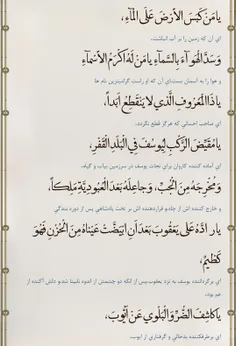 يا مَنْ كَبَسَ الأَرْضَ عَلَى المآءِ،
ای آن که زمین را بر آب انباشت،
وَسَدَّ الْهَوآءَ بِالسَّمآءِ يا مَنْ لَهُ اَكْرَمُ الأَسْمآءِ
و هوا را به آسمان بست،ای آن که او راست گرامی‌ترین نام ها
يا ذَا الْمَعْرُوفِ الَّذي لا يَنْقَطِعُ اَبَداً،
ای صاحب احسانی که هرگز قطع نگردد،
يا مُقَيِّضَ الرَّكْبِ لِيُوسُفَ فِي الْبَلَدِ الْقَفْرِ،
ای آماده کننده کاروان برای نجات یوسف در سرزمین بی‌آب و گیاه،
وَمُخْرِجَهُ مِنَ الْجُبِّ، وَجاعِلَهُ بَعْدَ الْعُبُودِيَّةِ مَلِكاً،
و خارج کننده اش از چاه،و قراردهنده اش بر تخت پادشاهی پس از دوره بندگی
يا رادَّهُ عَلى يَعْقُوبَ بَعْدَ اَنِ ابْيَضَّتْ عَيْناهُ مِنَ الْحُزْنِ فَهُوَ
كَظيمٌ،
ای برگرداننده یوسف به نزد یعقوب،پس از آنکه دو چشمش از اندوه نابینا شد،و دلش آکنده از
غم بود،
يا كاشِفَ الضُّرِّ وَالْبَلْوى عَنْ اَيُّوبَ،
ای برطرفکننده بدحالی و گرفتاری از ایوب،